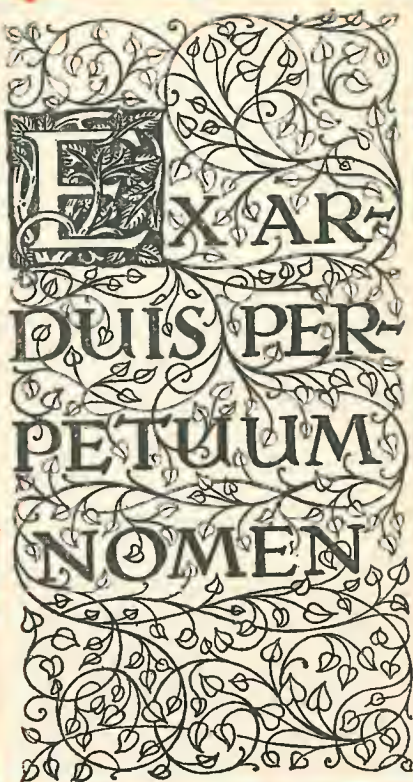 EX AR-
DUIS PER-
PETUUM
NOMEN